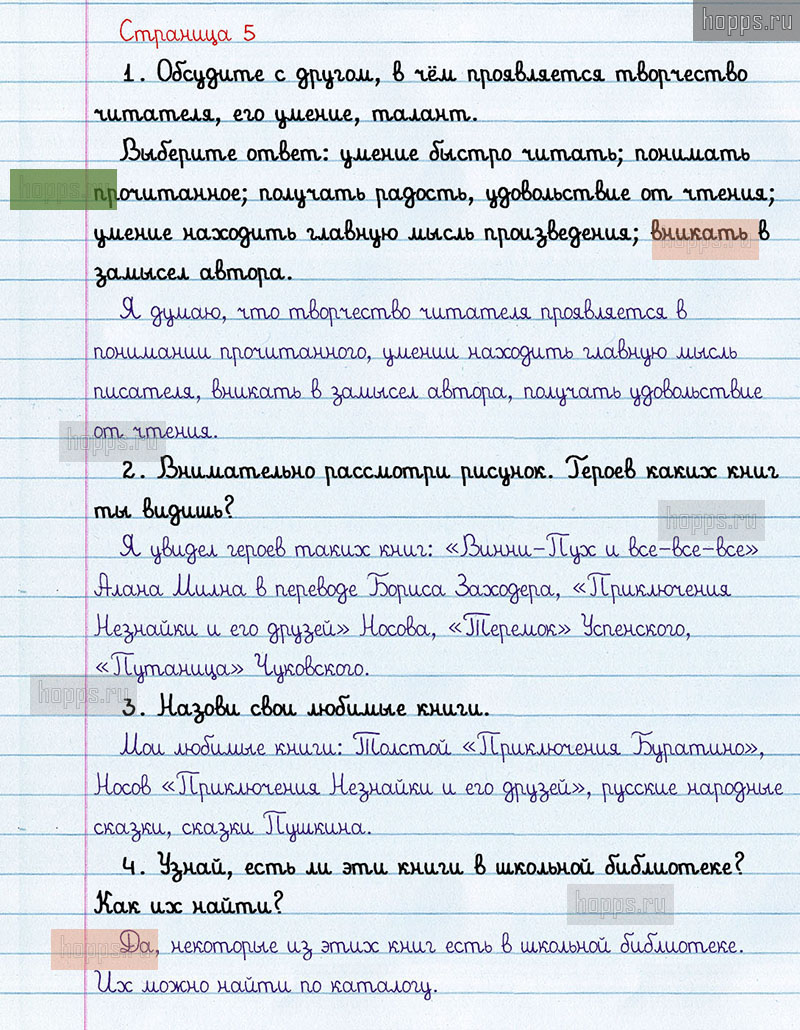 hopps.ru
Страница 5
1. Обсудите с другом, в чём проявляется творчество
читателя, его умение, талант.
Выберите ответ: умение быстро читать; понимать
hopps.ru
прочитанное; получать радость, удовольствие от чтения;
умение находить главную мысль произведения; вникать в
hopps.ru
замысел автора.
Я думаю, что творчество читателя проявляется в
понимании прочитанного, умении находить главную мысль
писателя, вникать в замысел автора, получать удовольствие
от чтения.
hopps.ru
2. Внимательно рассмотри рисунок. Героев каких книг
ты видишь?
hopps.ru
Я увидел героев таких книг: «Винни-Пух и все-все-все»
Алана Милна в переводе Бориса Заходера, «Приключения
Незнайки и его друзей» Носова, «Теремок» Успенского,
«Путаница» Чуковского.
hopps.ru
3. Назови свои любимые книги.
Мои любимые книги: Толстой «Приключения Буратино»,
Носов «Приключения Незнайки и его друзей», русские народные
сказки, сказки Пушкина.
4. Узнай, есть ли эти книги в школьной библиотеке?
Как их найти?
hopps.ru
Да, некоторые из этих книг есть в школьной библиотеке.
hopps.ru
Их можно найти по каталогу.